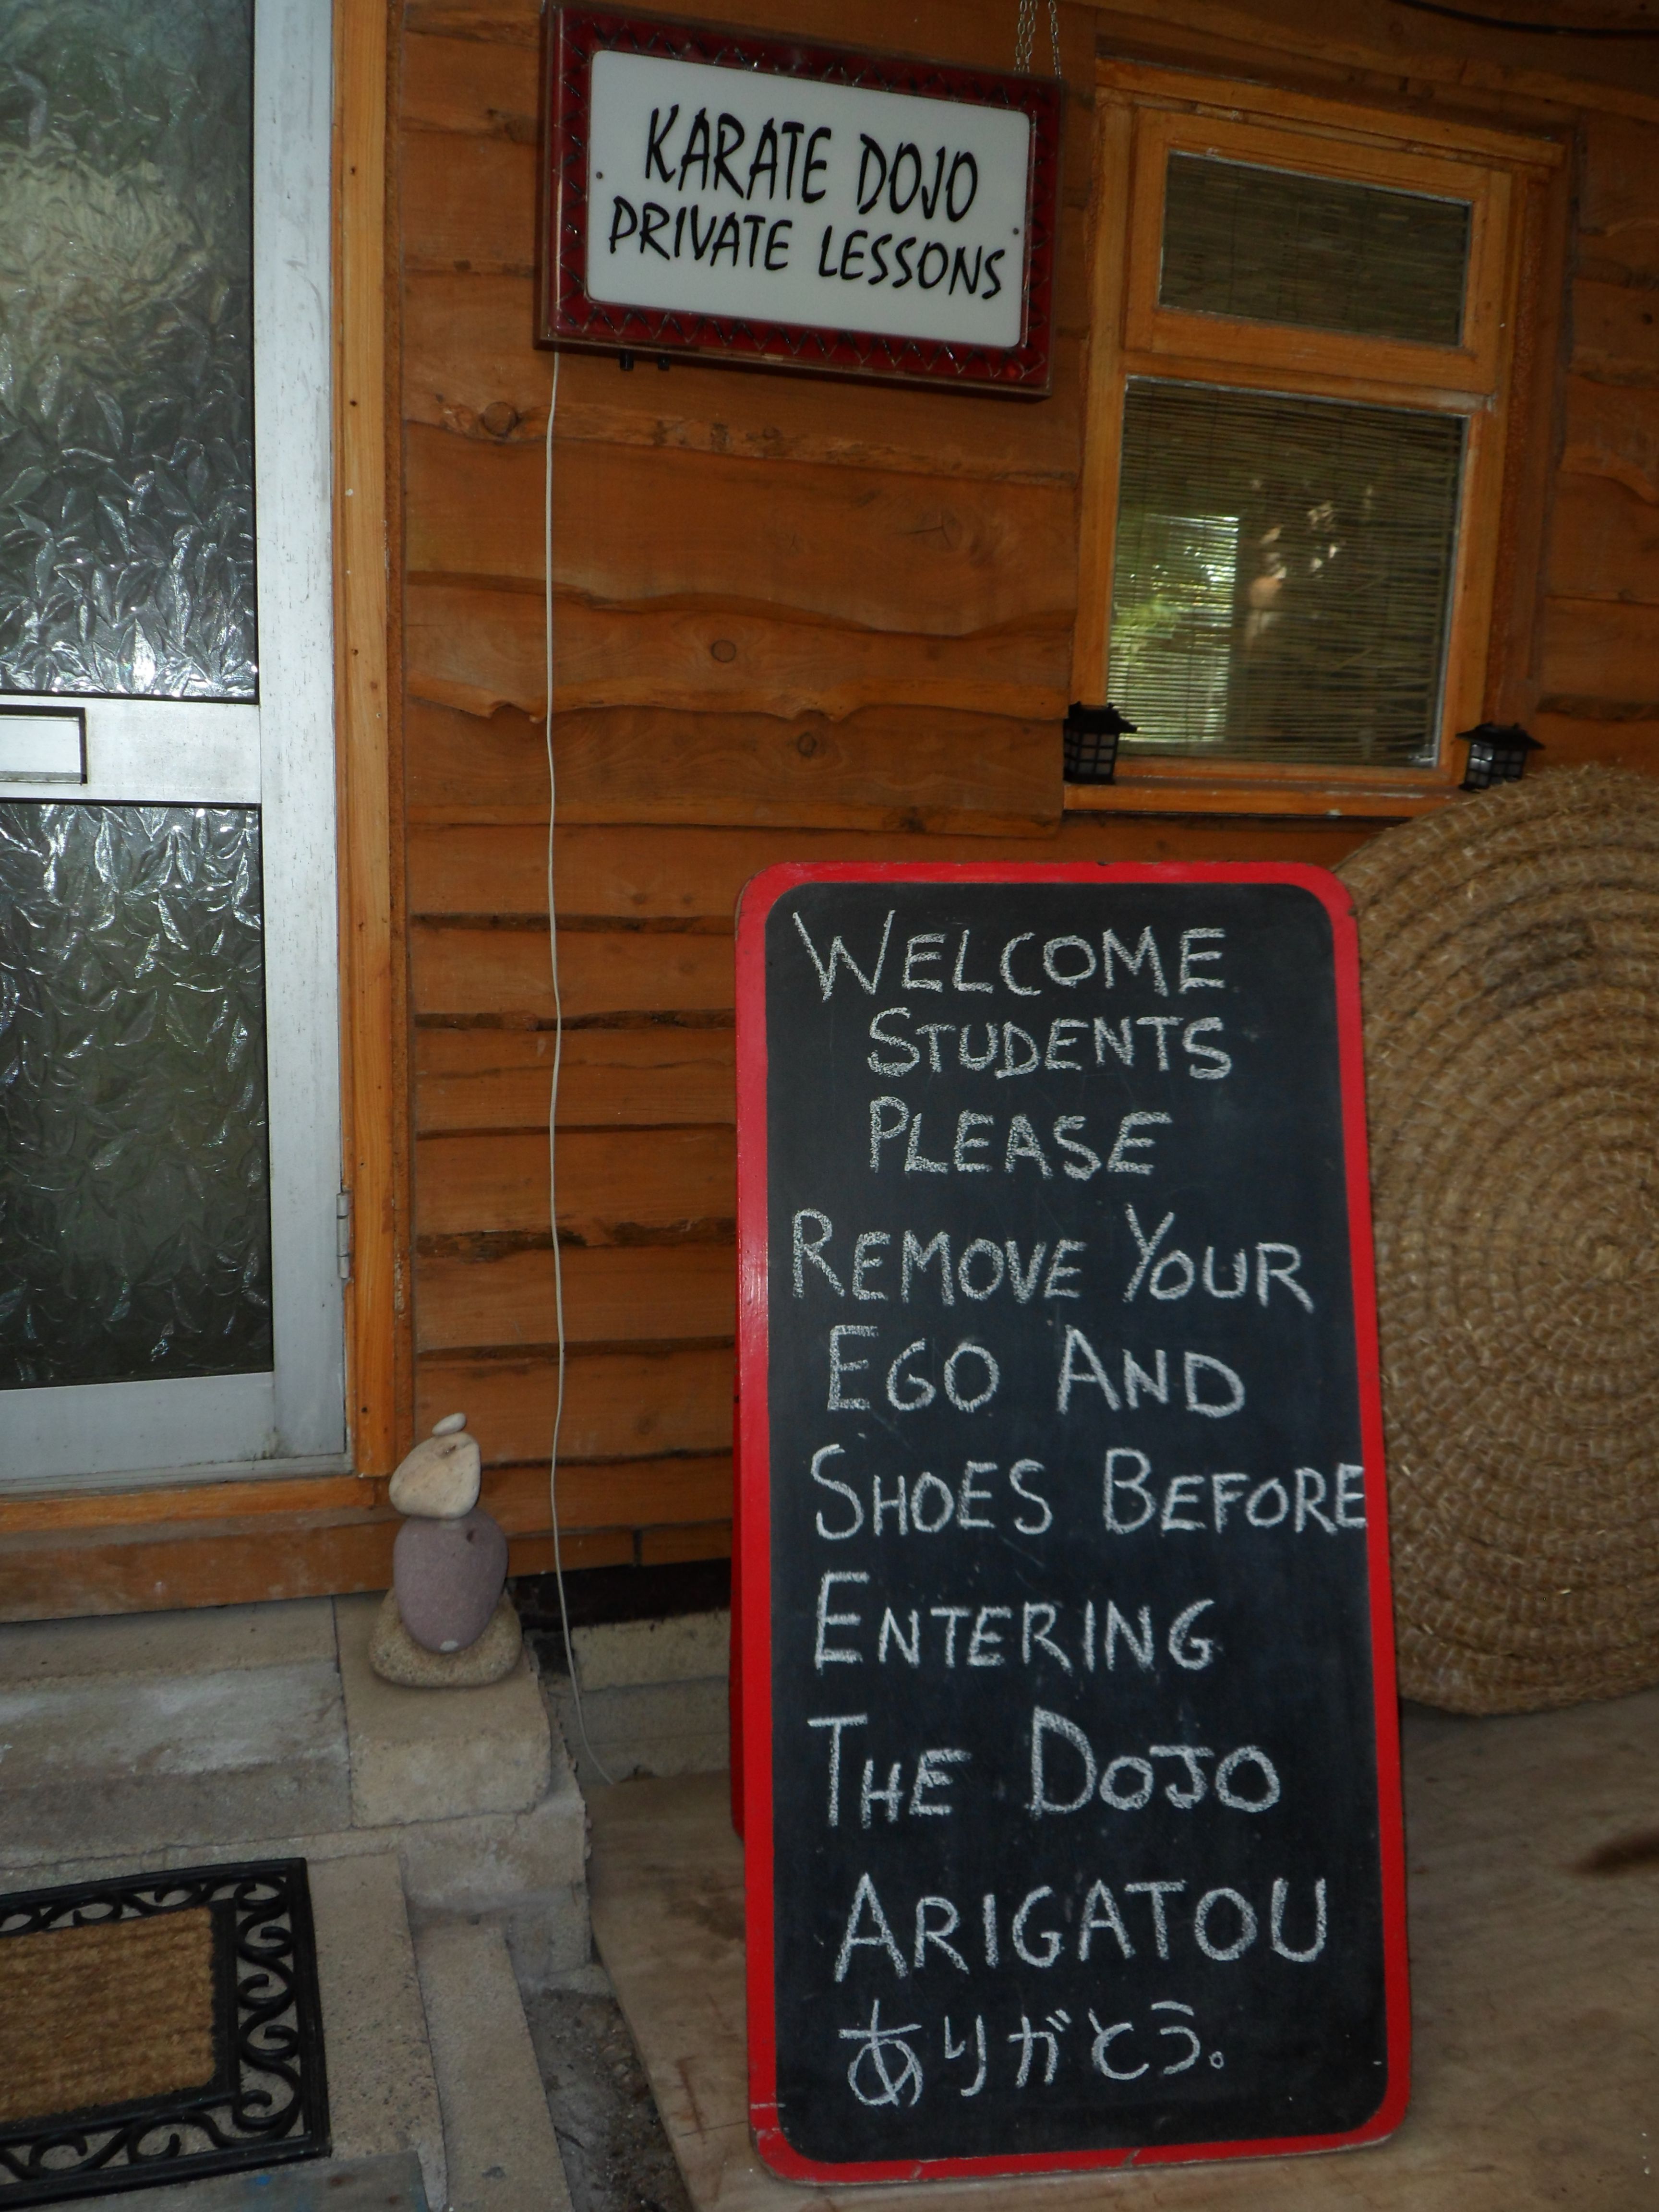 KARATE DOJO
PRIVATE LESSONS
WELCOME
STUDENTS
PLEASE
REMOVE YOUR
EGO AND
SHOES BEFORE
ENTERING
THE DOJO
ARIGATOU
ありがとう。